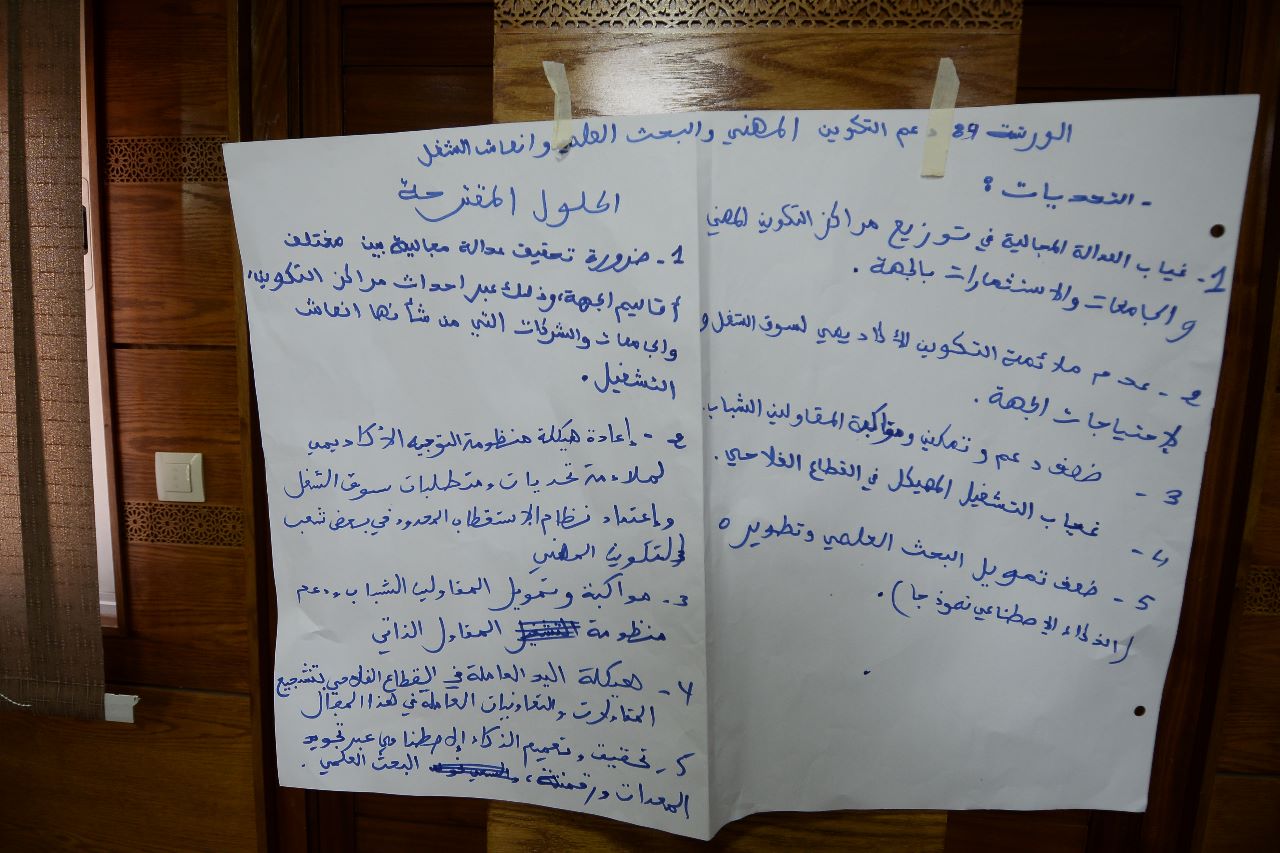 الورشة 09 دعم التكوين المهني والبحث العلمي وانعاش الشغل
- التحديات :
1- غياب العدالة المجالية في توزيع مراكز التكوين المهني
والجامعات والاستثمارات بالجهة .
2- عدم ملائمة التكوين الأكاديمي لسوق الشغل و
لاحتياجات الجهة .
3- ضعف دعم وتمكين ومواكبة المقاولين الشباب.
4- غياب التشغيل المهيكل في القطاع الفلاحي .
5- ضعف تمويل البحث العلمي وتطويره
(الذكاء الاصطناعي نموذجا) .
الحلول المقترحة
1- ضرورة تحقيق عدالة مجالية بين مختلف
أقاليم الجهة، وذلك عبر احداث مراكز التكوين،
والجامعات والشركات التي من شأنها انعاش
التشغيل .
2- إعادة هيكلة منظومة التوجيه الأكاديمي
لملاءمة تحديات ومتطلبات سوق الشغل
وإعتماد نظام الاستقطاب المحدود في بعض شعب
التكوين المهني
3- مواكبة وتمويل المقاولين الشباب ودعم
منظومة المقاول الذاتي
4- هيكلة اليد العاملة في القطاع الفلاحي بتشجيع
المقاولات والتعاونيات العاملة في هذا المجال
5- تحقيق وتعميم الذكاء الإصطناعي عبر تجويد
المعدات ورقمنة، البحث العلمي .